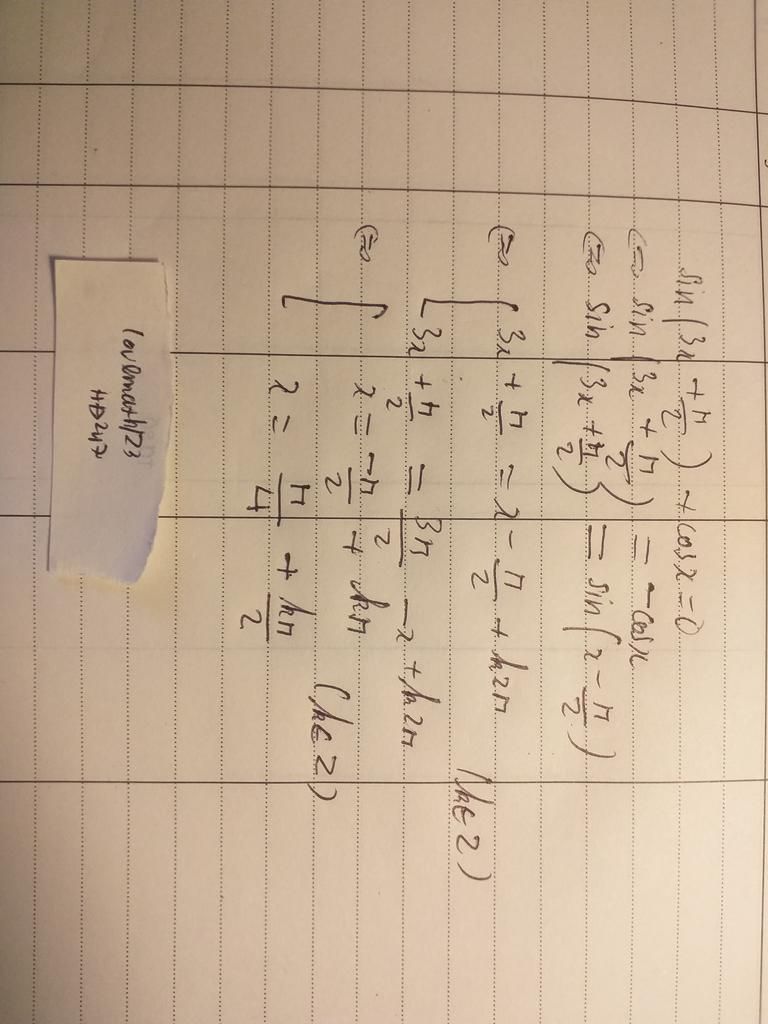 sin(3x + π/2) + cosx = 0
<=> sin(3x + π/2) = -cosx
<=> sin(3x + π/2) = sin(x - π/2)
<=> [ 3x + π/2 = x - π/2 + k2π
[ 3x + π/2 = 3π/2 - x + k2π (k∈Z)
<=> [ x = -π/2 + kπ
[ x = π/4 + kπ/2 (k∈Z)
lovemath123